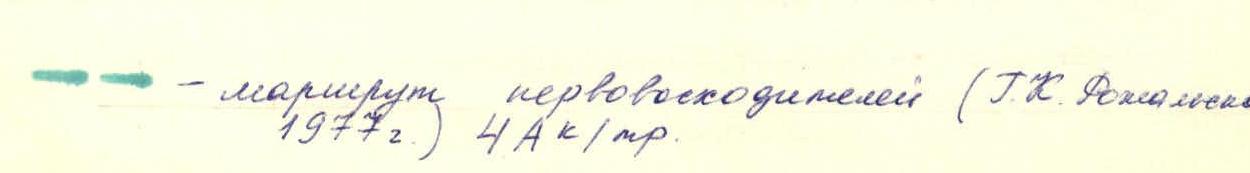 – маршрут первовосходителей (Г.К.
1977г.) 4А к/тр.